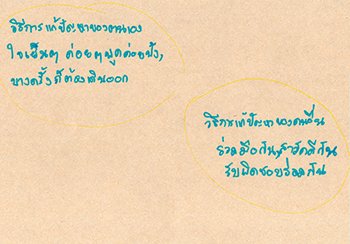 วิธีการแก้ปัญหาของตนเอง
ใจเย็นๆ ค่อยๆพูดค่อยจา,
บางครั้งก็ต้องเดินออก
วิธีการแก้ปัญหาของคนอื่น
ร่วมมือกัน,สามัคคีกัน
รับผิดชอบร่วมกัน